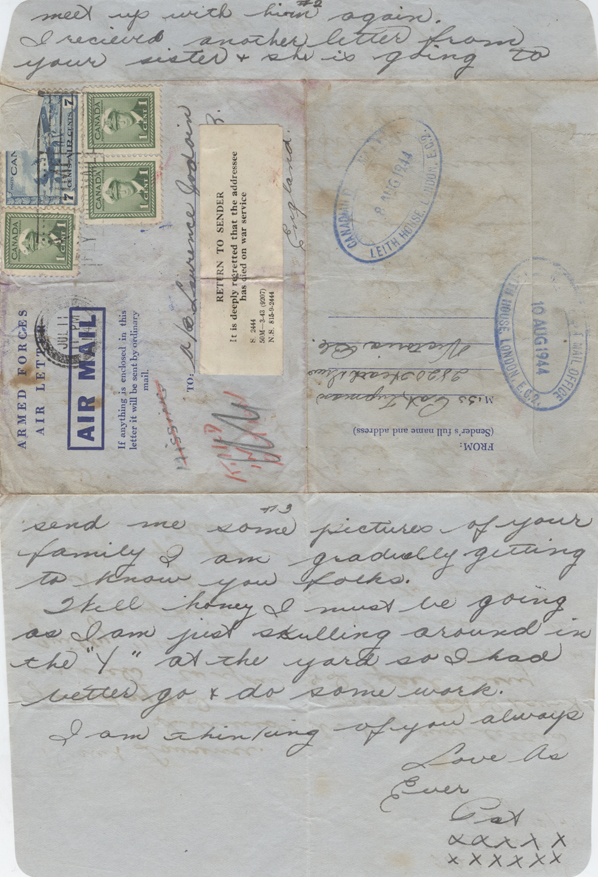 #2
meet up with him again.
I recieved another letter from
your sister & she is going to
CANADA
7
7
POSTES POSTAGE
CANADA
1
1
CANADA
1
1
CANADA
1
1
JUL 11
ARMED FORCES
AIR LETTER
AIR MAIL
If anything is enclosed in this
letter it will be sent by ordinary
mail.
TO:
Lawrence Jodoin
England.
RETURN TO SENDER
It is deeply regretted that the addressee
has died on war service
S. 2444
50M—3-43 (9207)
N.S. 815-9-2444
Missing
CANADIAN
8 AUG 1944
LEITH HOUSE, LONDON, E.C.2.
MAIL OFFICE
10 AUG 1944
LEITH HOUSE, LONDON, E.C.2.
FROM:
(Sender's full name and address)
Miss Pat
Victoria B.C.
#3
send me some pictures of your
family I am gradually getting
to know you folks.
Well honey I must be going
as I am just skulling around in
the "Y" at the yard so I had
better go & do some work.
I am thinking of you always
Love As
Ever
Pat
x x x x x x
x x x x x x